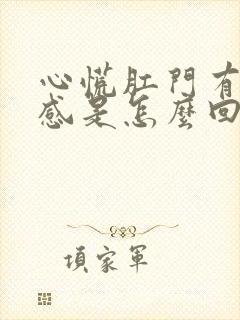 心慌肛門有
感是怎麼回
項家軍